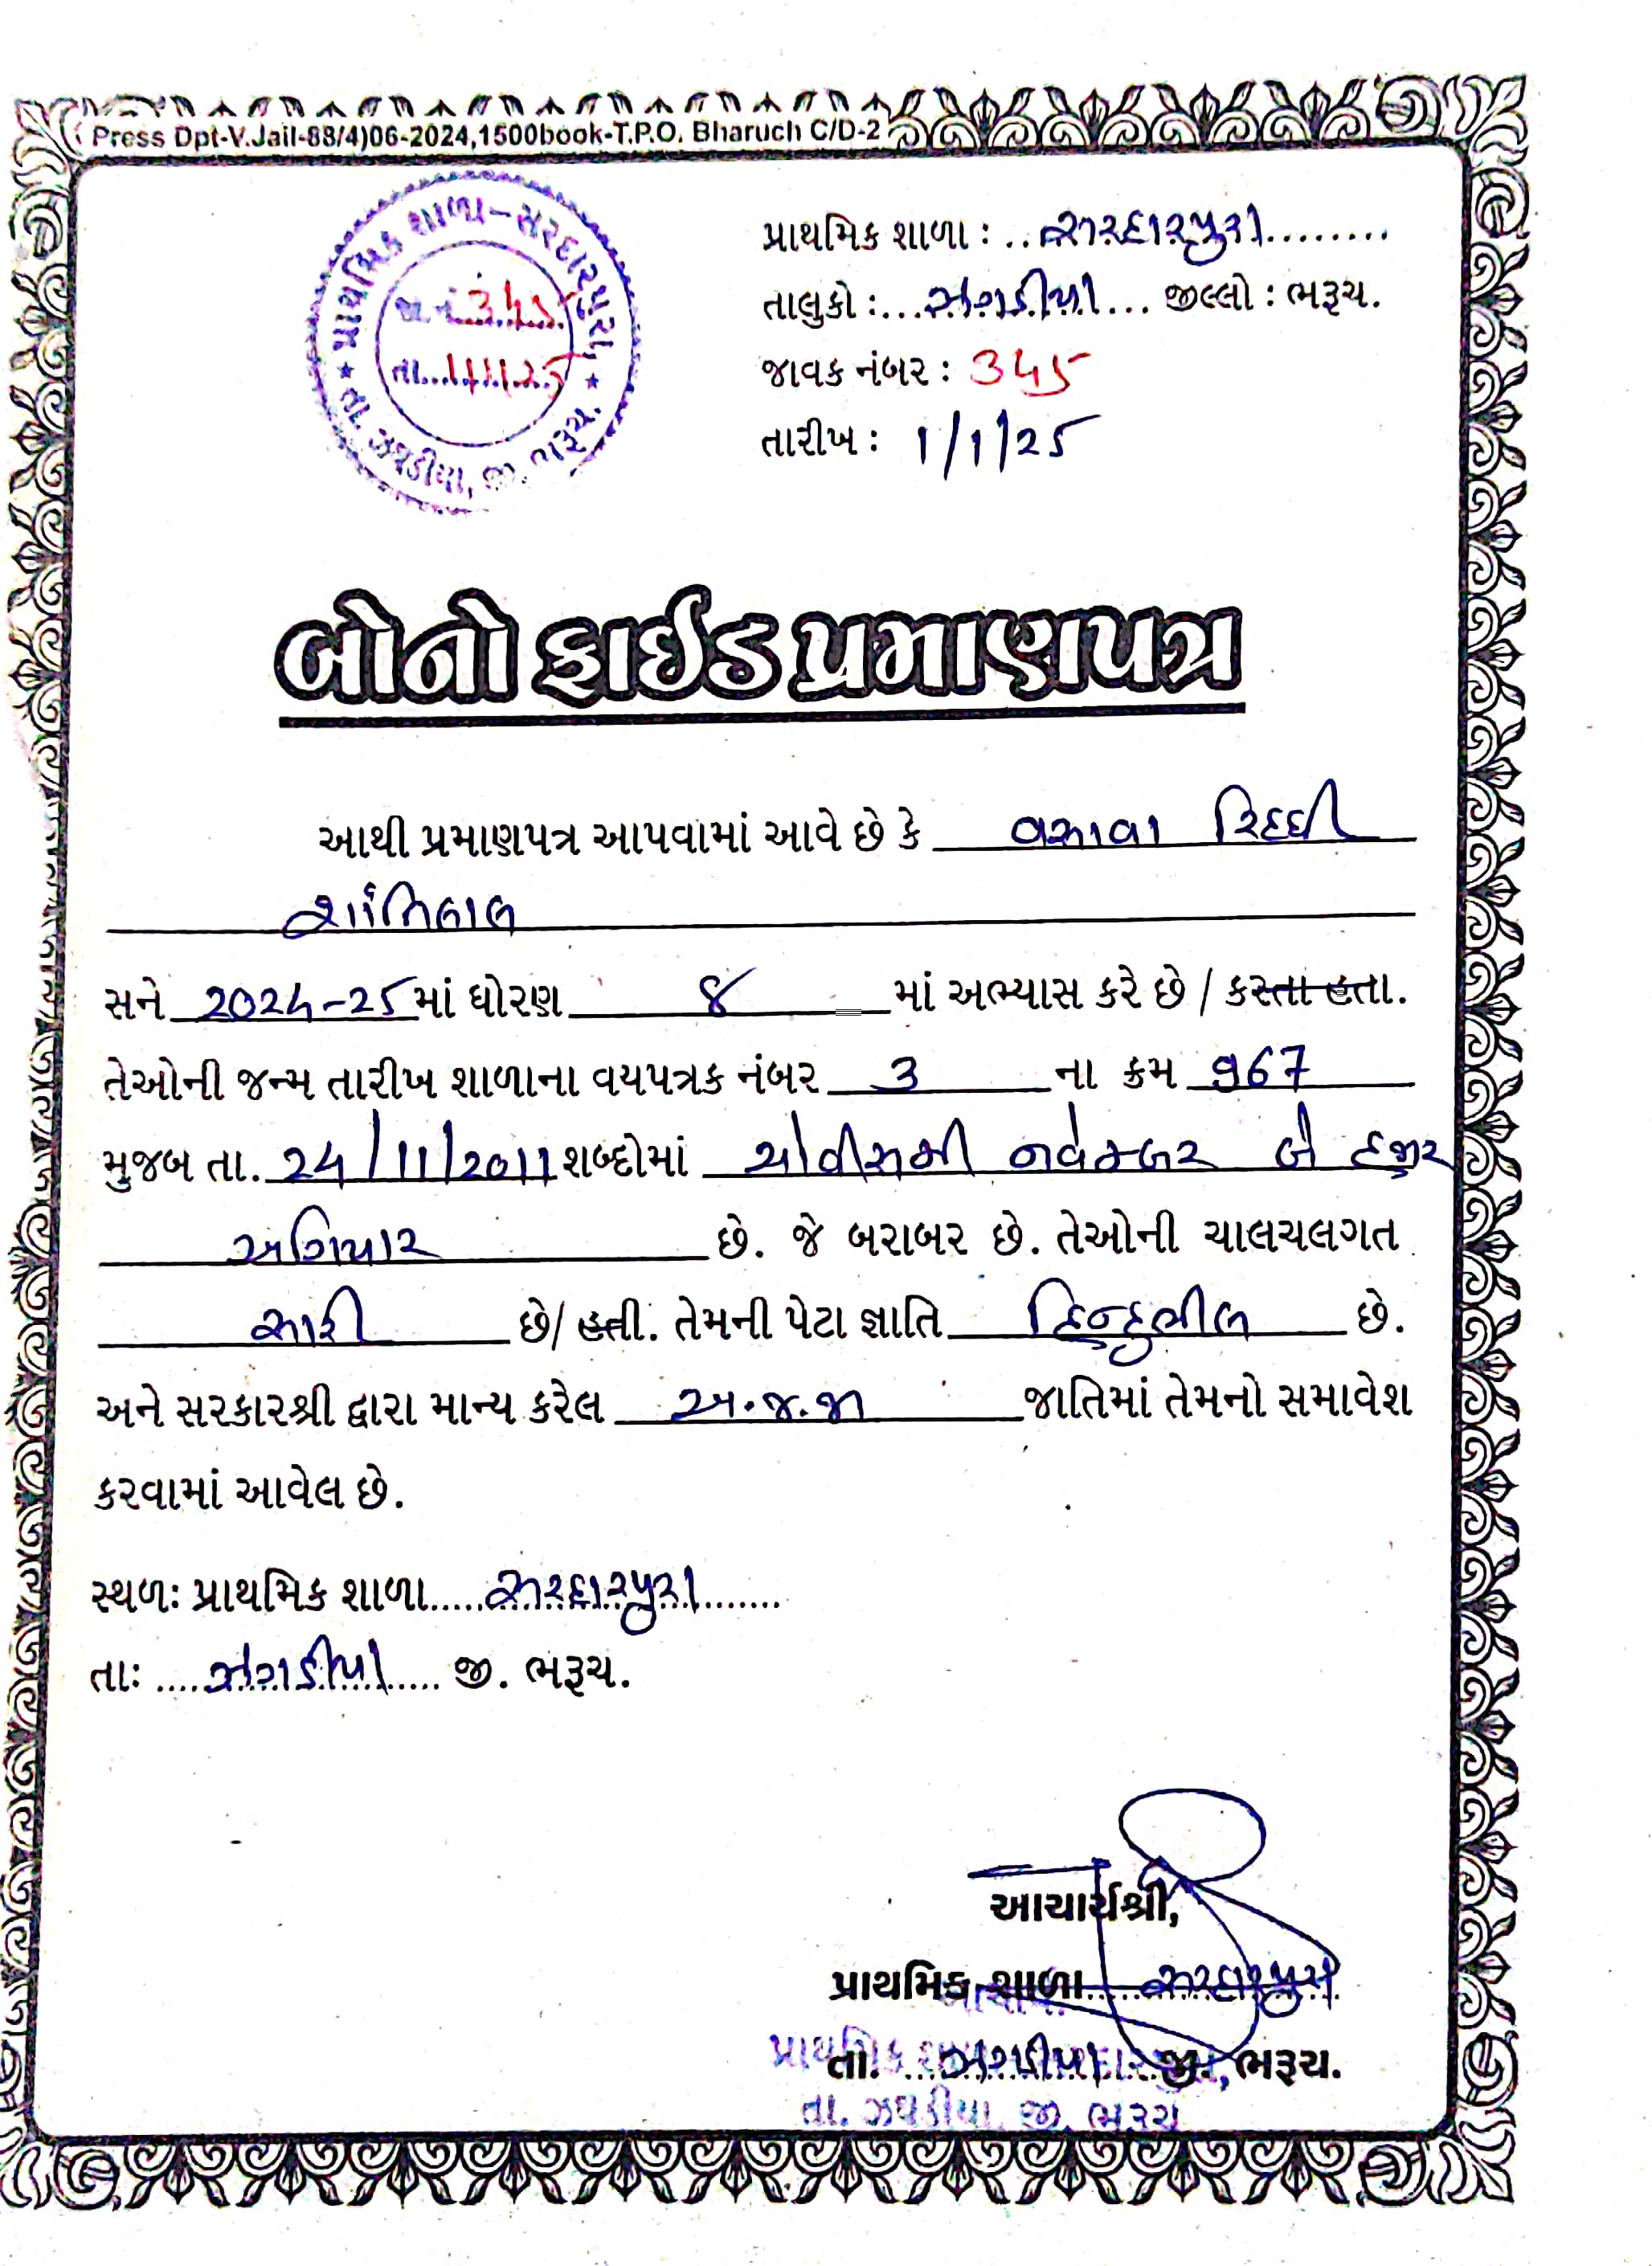 ( Press Dpt-V.Jail-88/4)06-2024,1500book-T.P.O. Bharuch C/D-2
પ્રાથમિક શાળા-સરદારપુરા,
જા.નં.345
તા.1/1/25
★ તા. ઝઘડીયા, જી. ભરૂચ. ★
પ્રાથમિક શાળા : ..સરદારપુરા........
તાલુકો :...ઝગડીયા... જીલ્લો : ભરૂચ.
જાવક નંબર : 345
તારીખ : 1/1/25
બોનો ફાઈડ પ્રમાણપત્ર
આથી પ્રમાણપત્ર આપવામાં આવે છે કે વસાવા રિદ્દધી
શાંતિલાલ
સને 2024-25 માં ધોરણ ૪ માં અભ્યાસ કરે છે / કરતા હતા.
તેઓની જન્મ તારીખ શાળાના વયપત્રક નંબર 3 ના ક્રમ 967
મુજબ તા. 24/11/2011 શબ્દોમાં ચોવીસમી નવેમ્બર બે હજાર
અગિયાર છે. જે બરાબર છે. તેઓની ચાલચલગત
સારી છે/ હતી. તેમની પેટા જ્ઞાતિ હિન્દુભીલ છે.
અને સરકારશ્રી દ્વારા માન્ય કરેલ અ.જ.જા જાતિમાં તેમનો સમાવેશ
કરવામાં આવેલ છે.
સ્થળઃ પ્રાથમિક શાળા.....સરદારપુરા........
તાઃ .....ઝગડીયા.... જી. ભરૂચ.
આચાર્યશ્રી,
પ્રાથમિક શાળા...સરદારપુરા
તા. ..ઝગડીયા.. જી., ભરૂચ.
પ્રાથમિક
તા. ઝઘડીયા, જી. ભરૂચ